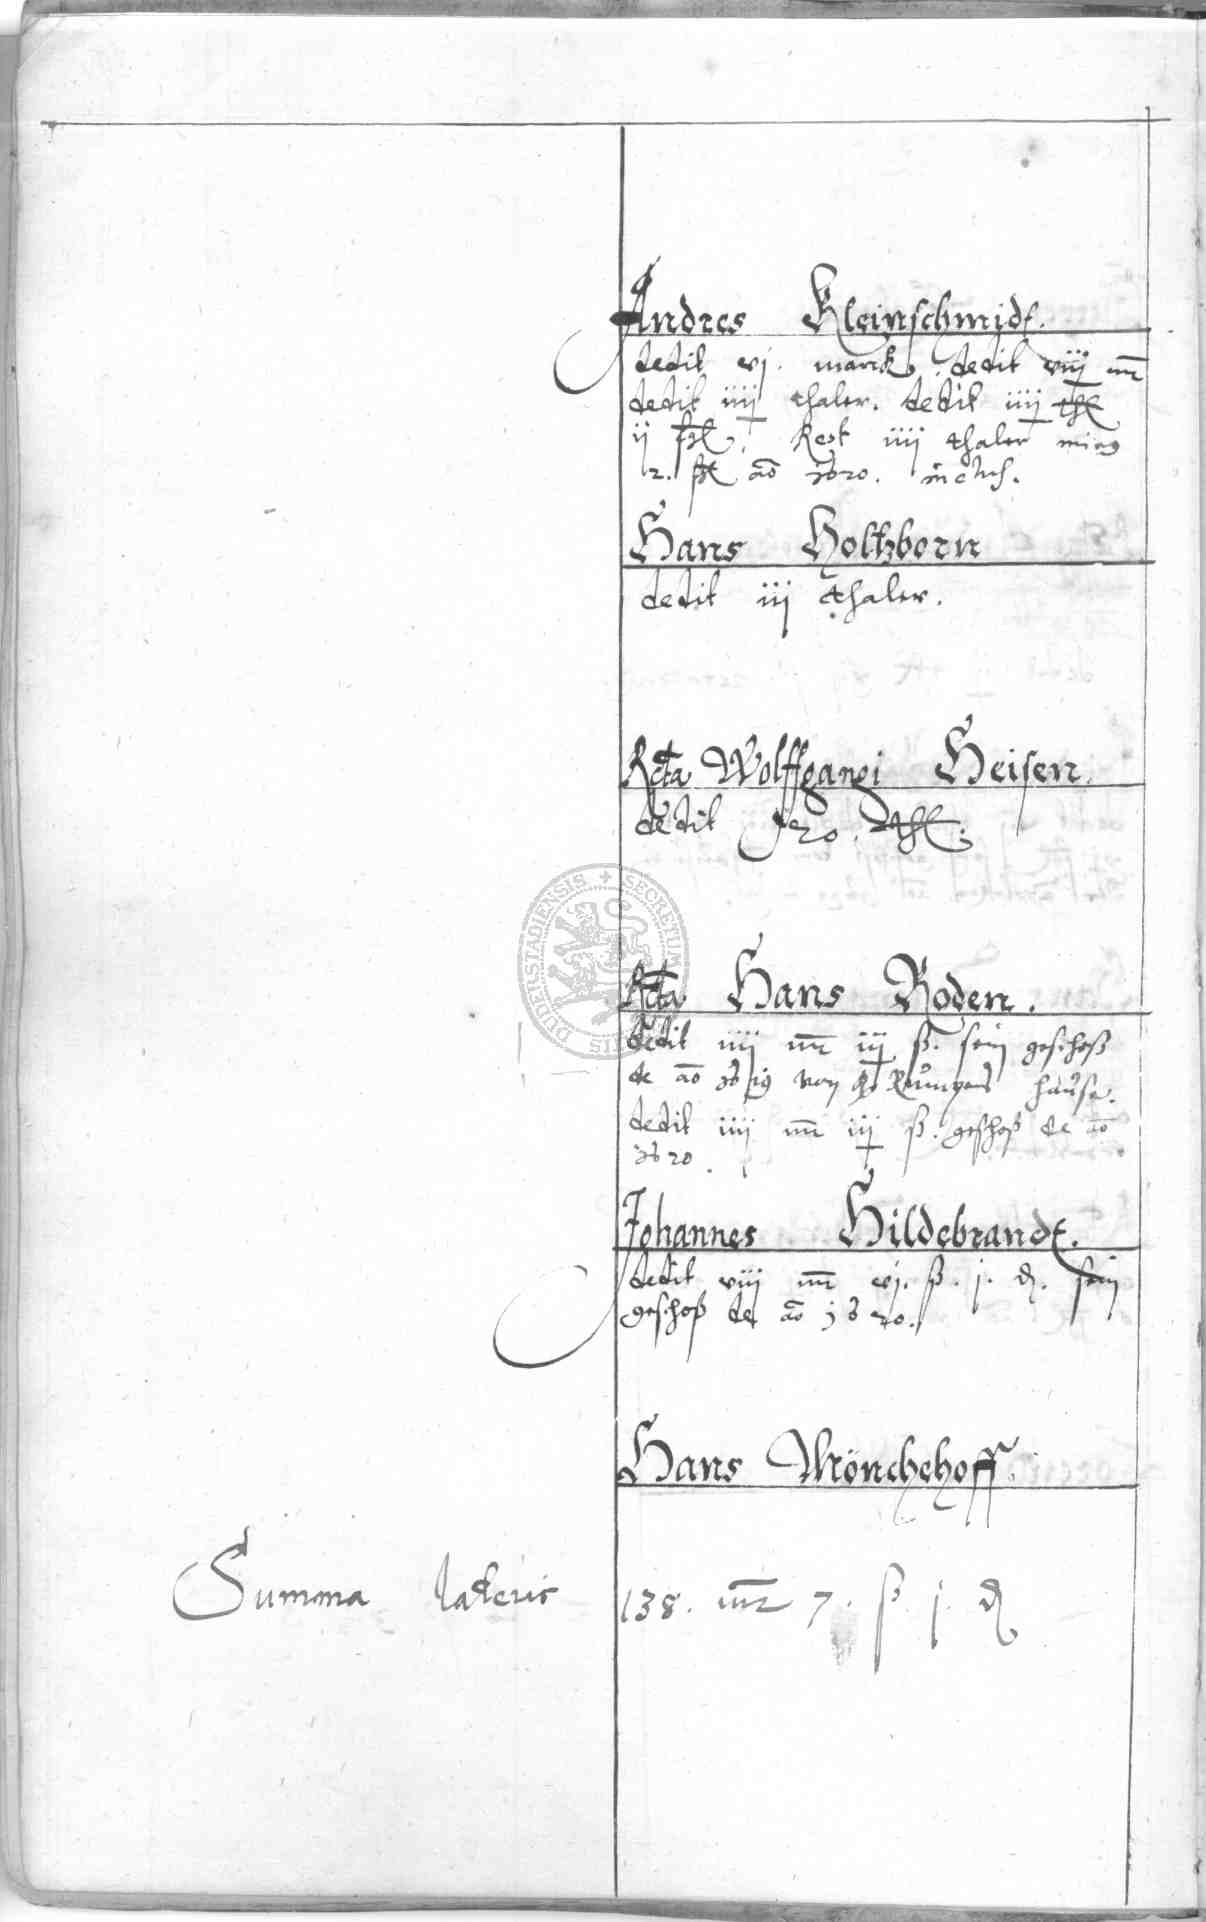 Andres Kleinschmidt.
dedit vj. marck. dedit viij mr
dedit iiij thaler. dedit iiij thl
ij ßl. Rest iiij thaler
2. ßl ao 1620.
Hans Holtzborn
dedit iij thaler.
Rcta Wolffgangi Heisen.
dedit 20. thl.
DUDERSTADIENSIS + SECRETUM
Rcta Hans Roden.
dedit iiij mr iij ß. sein geschoß
de ao 1619 von hause.
dedit iiij mr iij ß. geschoß de ao
1620.
Johannes Hildebrandt.
dedit viij mr vj. ß. j. d. sein
geschoß de ao 1620.
Hans Mönchehoff.
Summa lateris 138. mr 7. ß. j. d